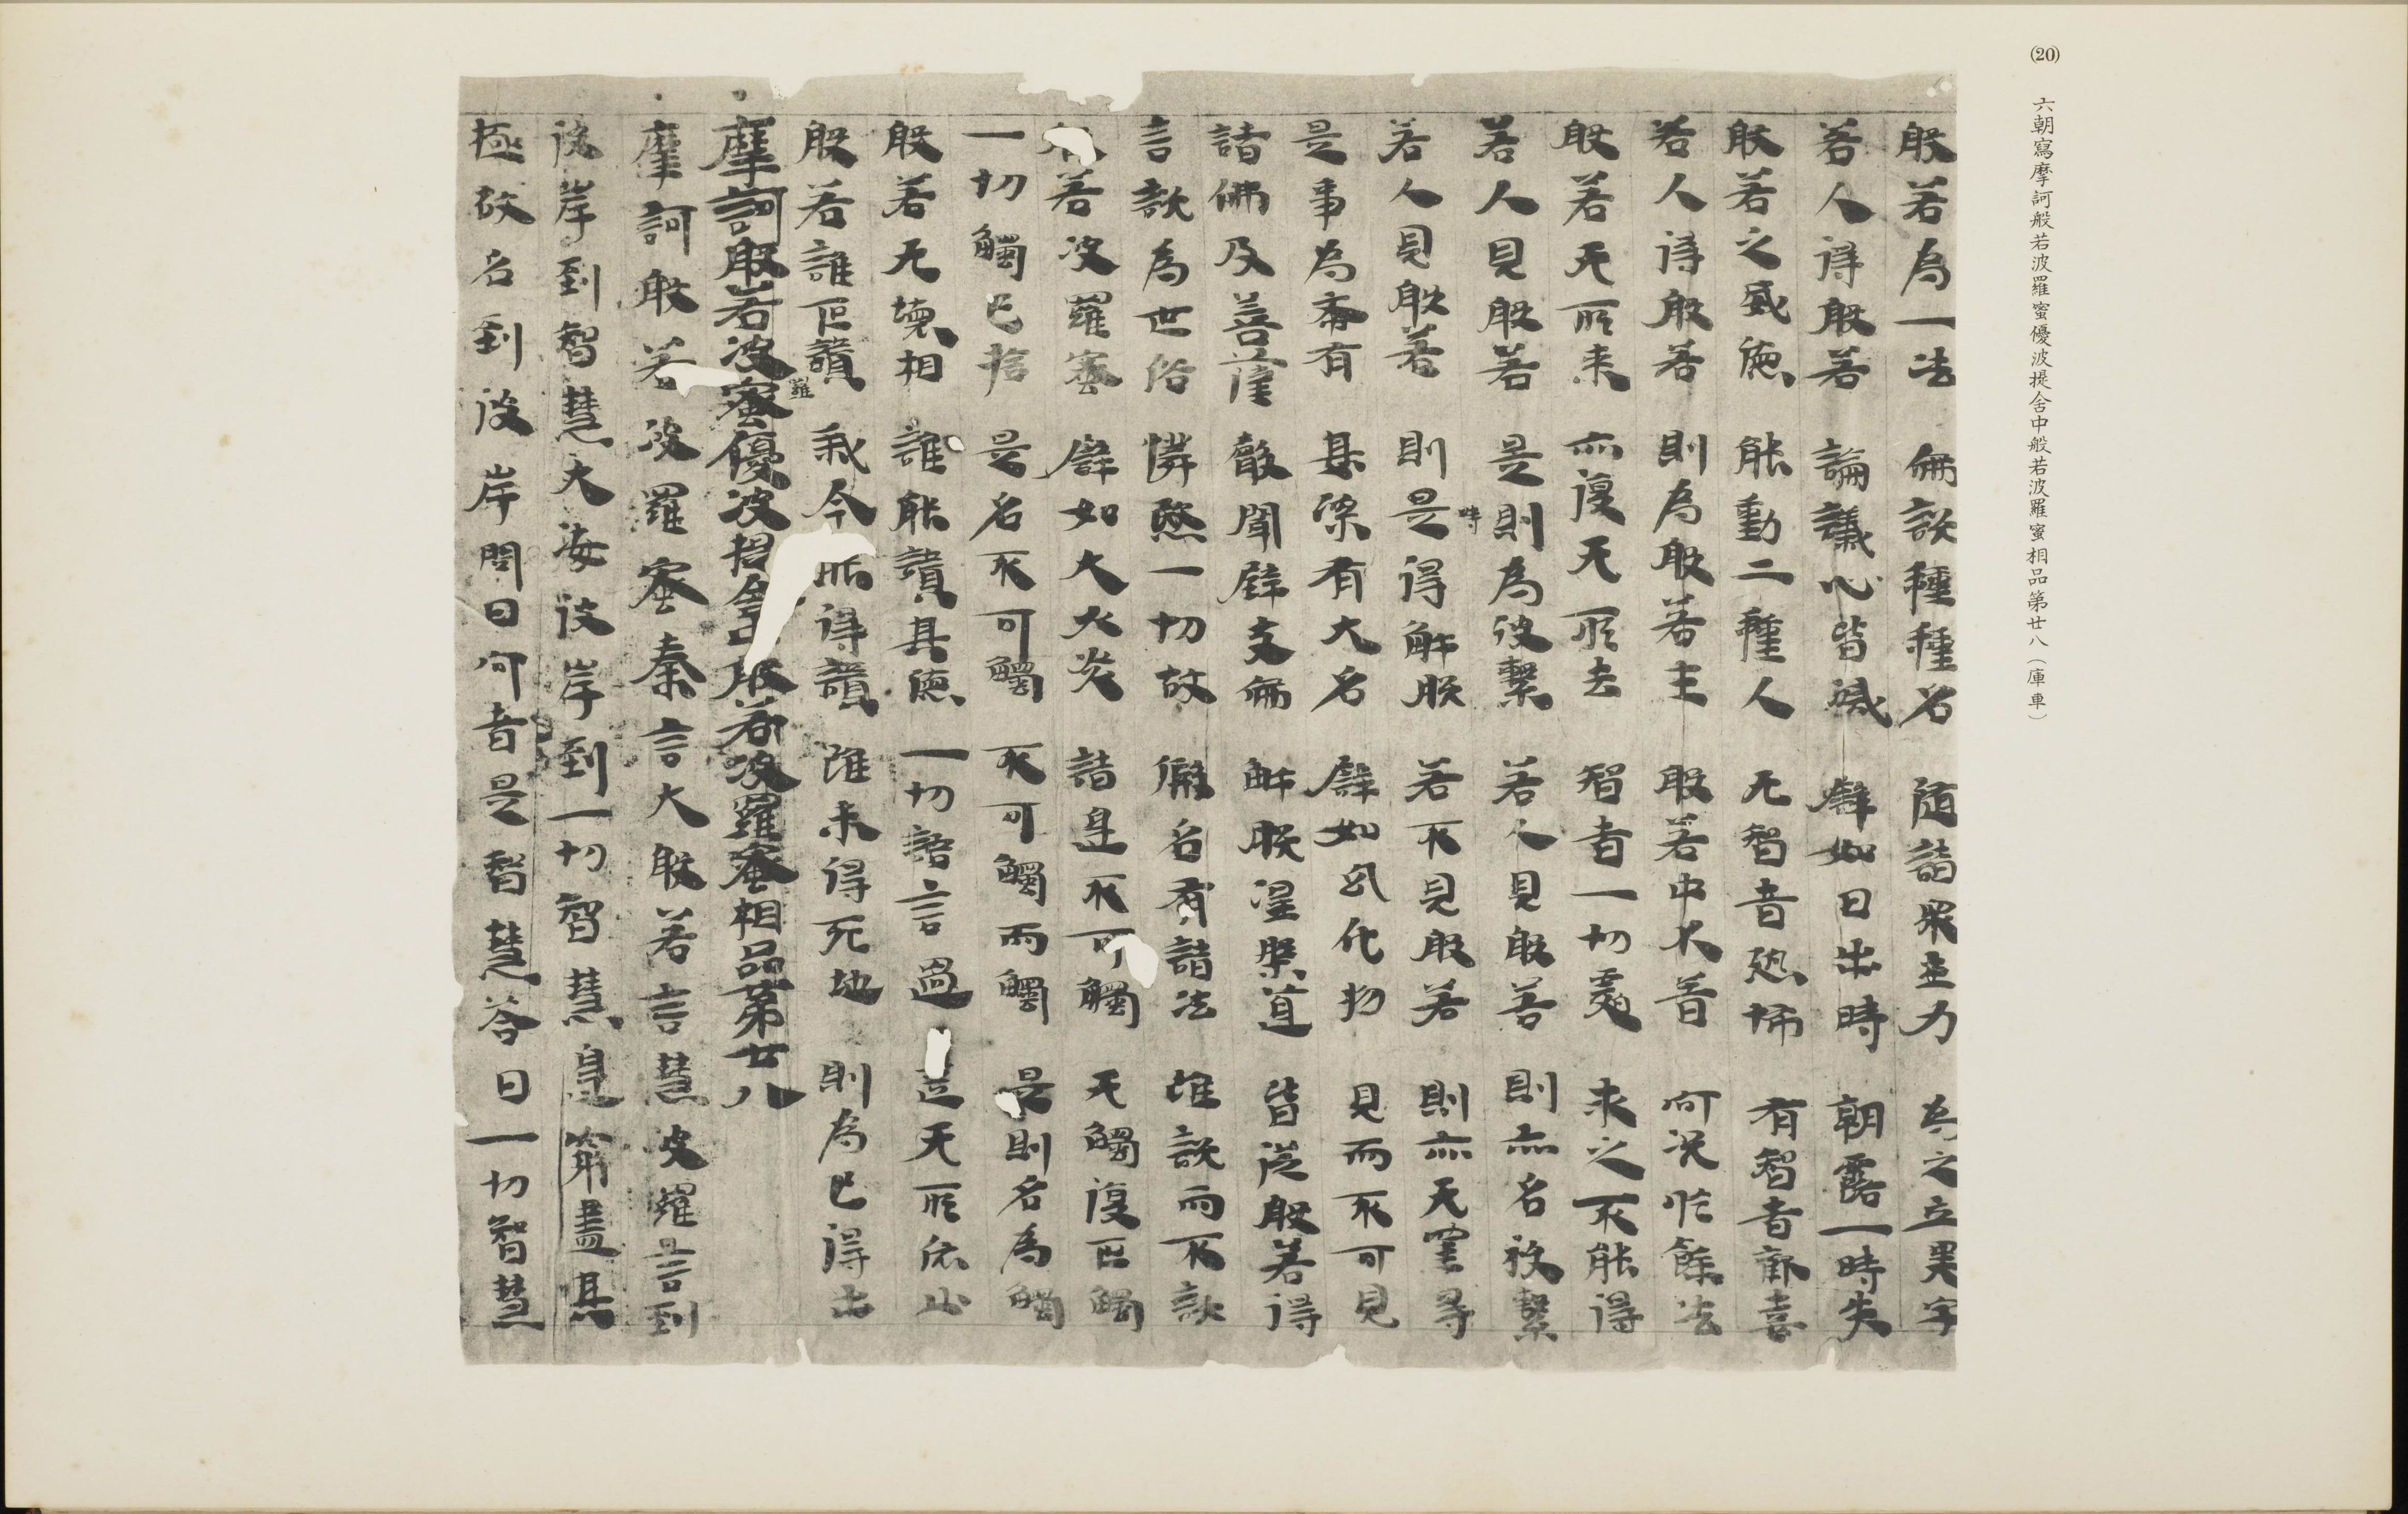 (20)
六朝寫摩訶般若波羅蜜優波提舍中般若波羅蜜相品第廿八(庫車)
般若為一法 佛說種種名 隨諸眾生力 為之立異字
若人得般若 論議心皆滅 譬如日出時 朝露一時失
般若之威德 能動二種人 无智者恐怖 有智者歡喜
若人得般若 則為般若主 般若中不著 何況於餘法
般若无所来 亦復无所去 智者一切處 求之不能得
若人見般若 是則為彼繫 若人見般若 則亦名彼繫
若人見般若 則是時得解脫 若不見般若 則亦无罣㝵
是事為希有 甚深有大名 譬如幻化物 見而不可見
諸佛及菩薩 聲聞辟支佛 解脫涅槃道 皆從般若得
言說為世俗 憐愍一切故 假名有諸法 雖說而不說
若波羅蜜 譬如大火炎 諸邊不可觸 无觸復叵觸
一切觸已捨 是名不可觸 不可觸而觸 是則名為觸
般若无壞相 誰能讚其德 一切語言過 逈无所依止
般若誰叵讚 我今所得讚 雖未得死地 則為已得出
摩訶般若波羅蜜優波提舍中般若波羅蜜相品第廿八
摩訶般若波羅蜜秦言大般若言慧波羅言到
彼岸到智慧大海彼岸到一切智慧邊窮盡其
極故名到彼岸問曰何者是智慧答曰一切智慧